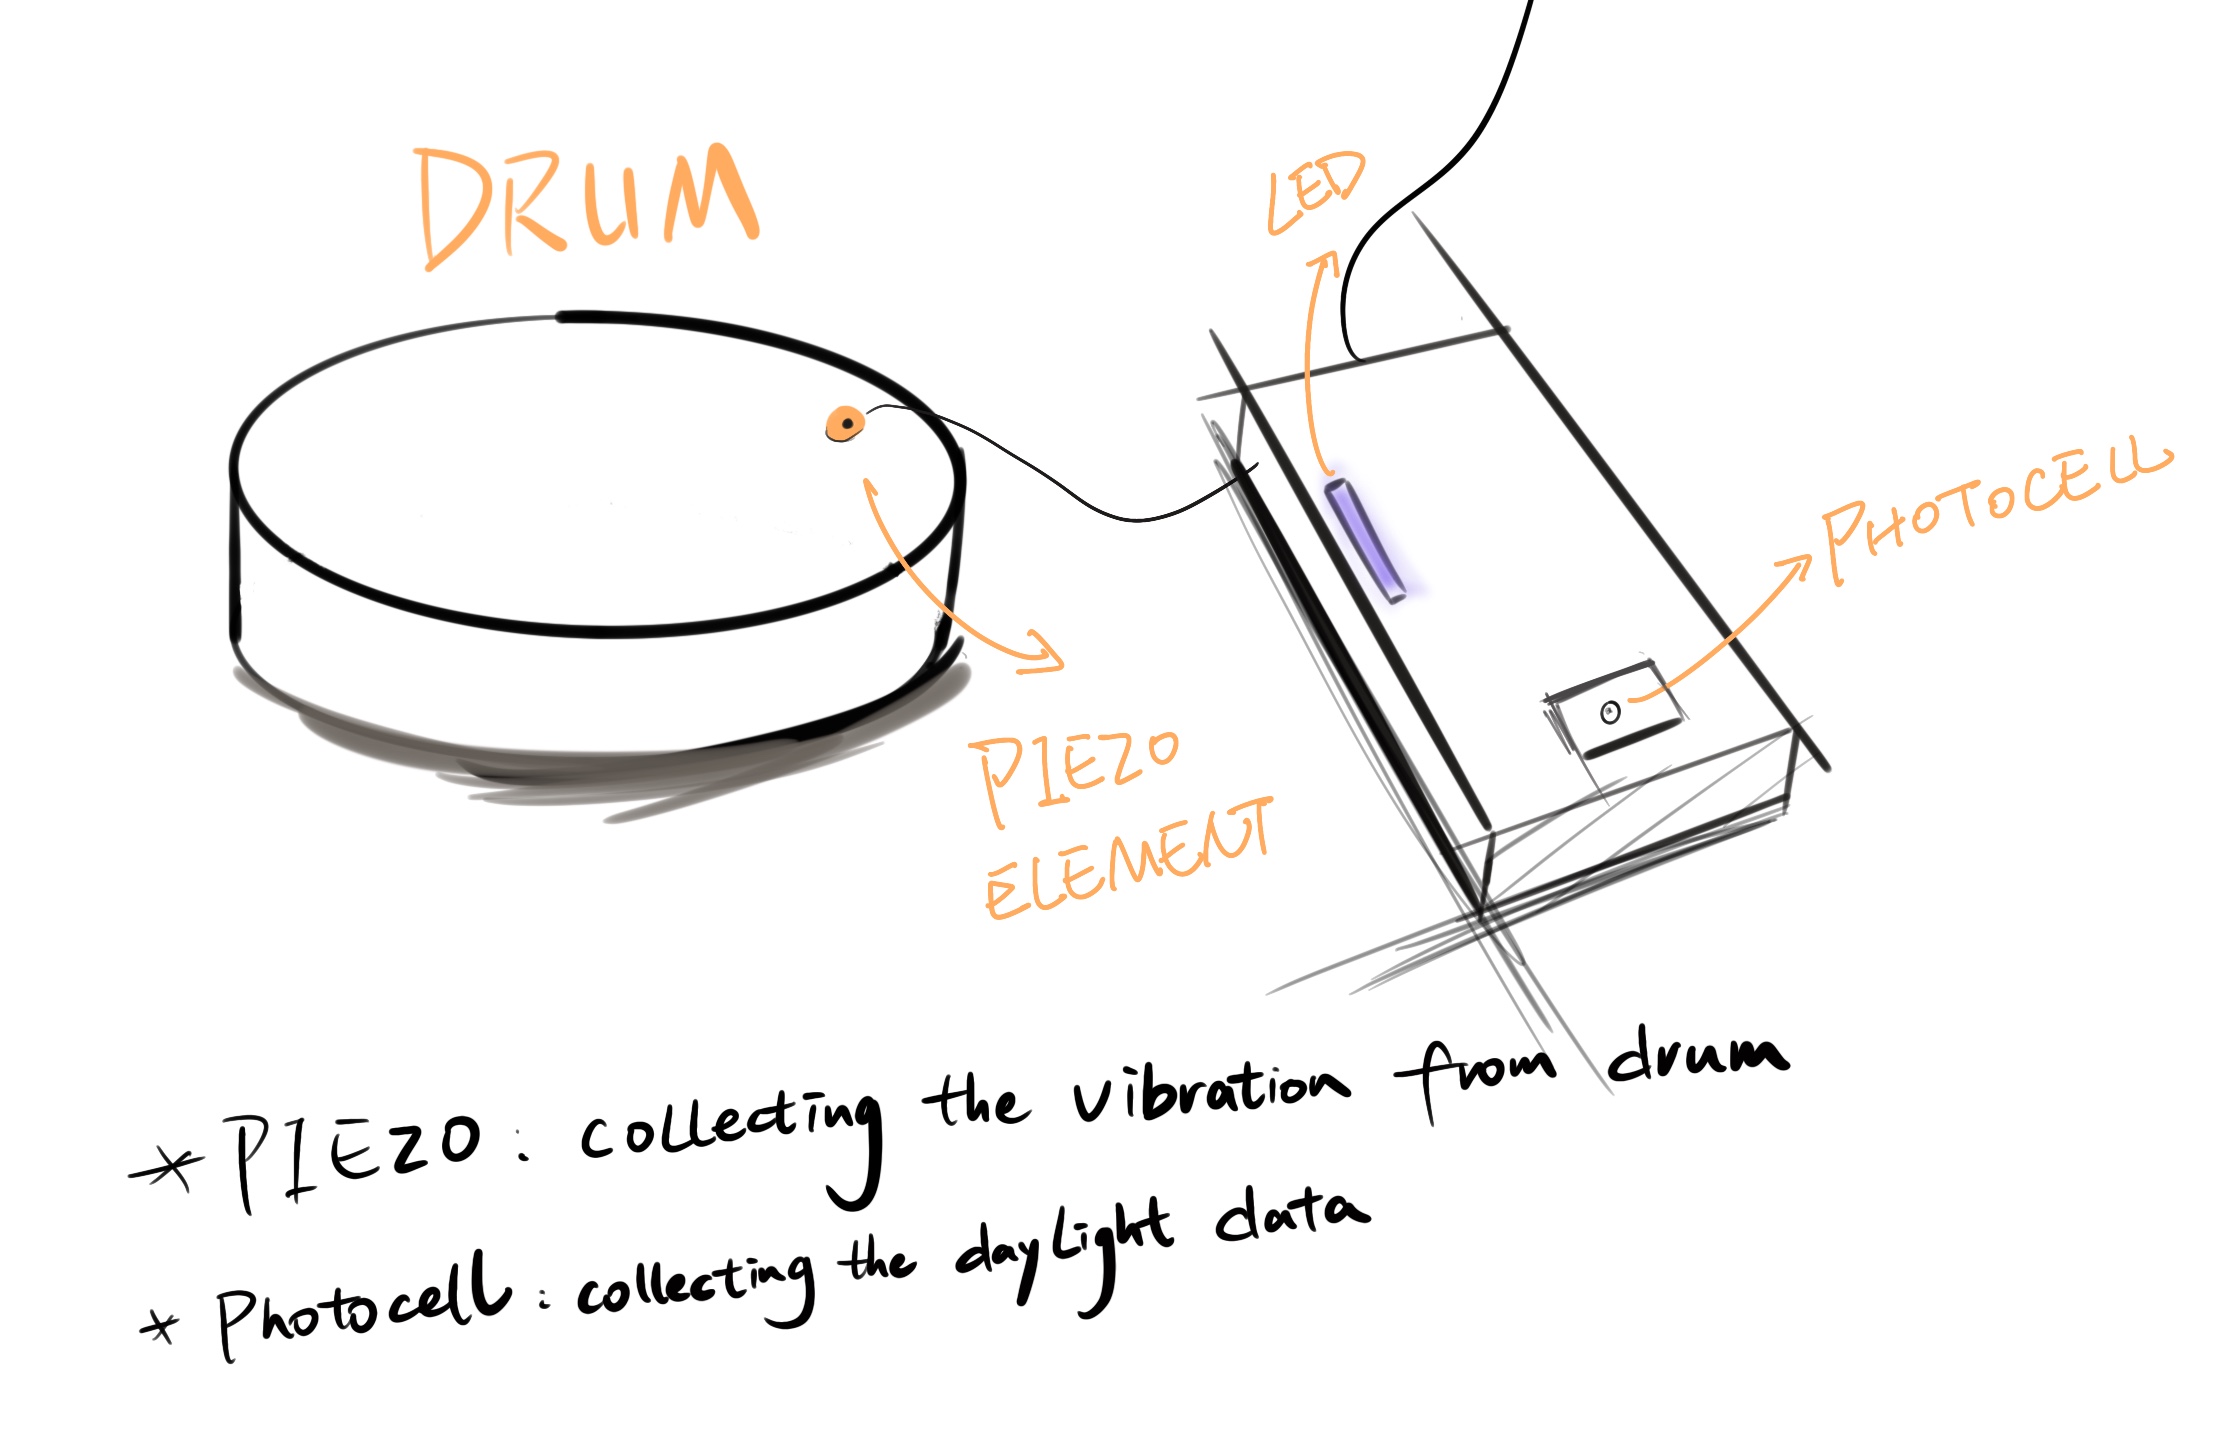 DRUM
LED
PHOTOCELL
PIEZO
ELEMENT
* PIEZO: collecting the vibration from drum
* Photocell: collecting the daylight data